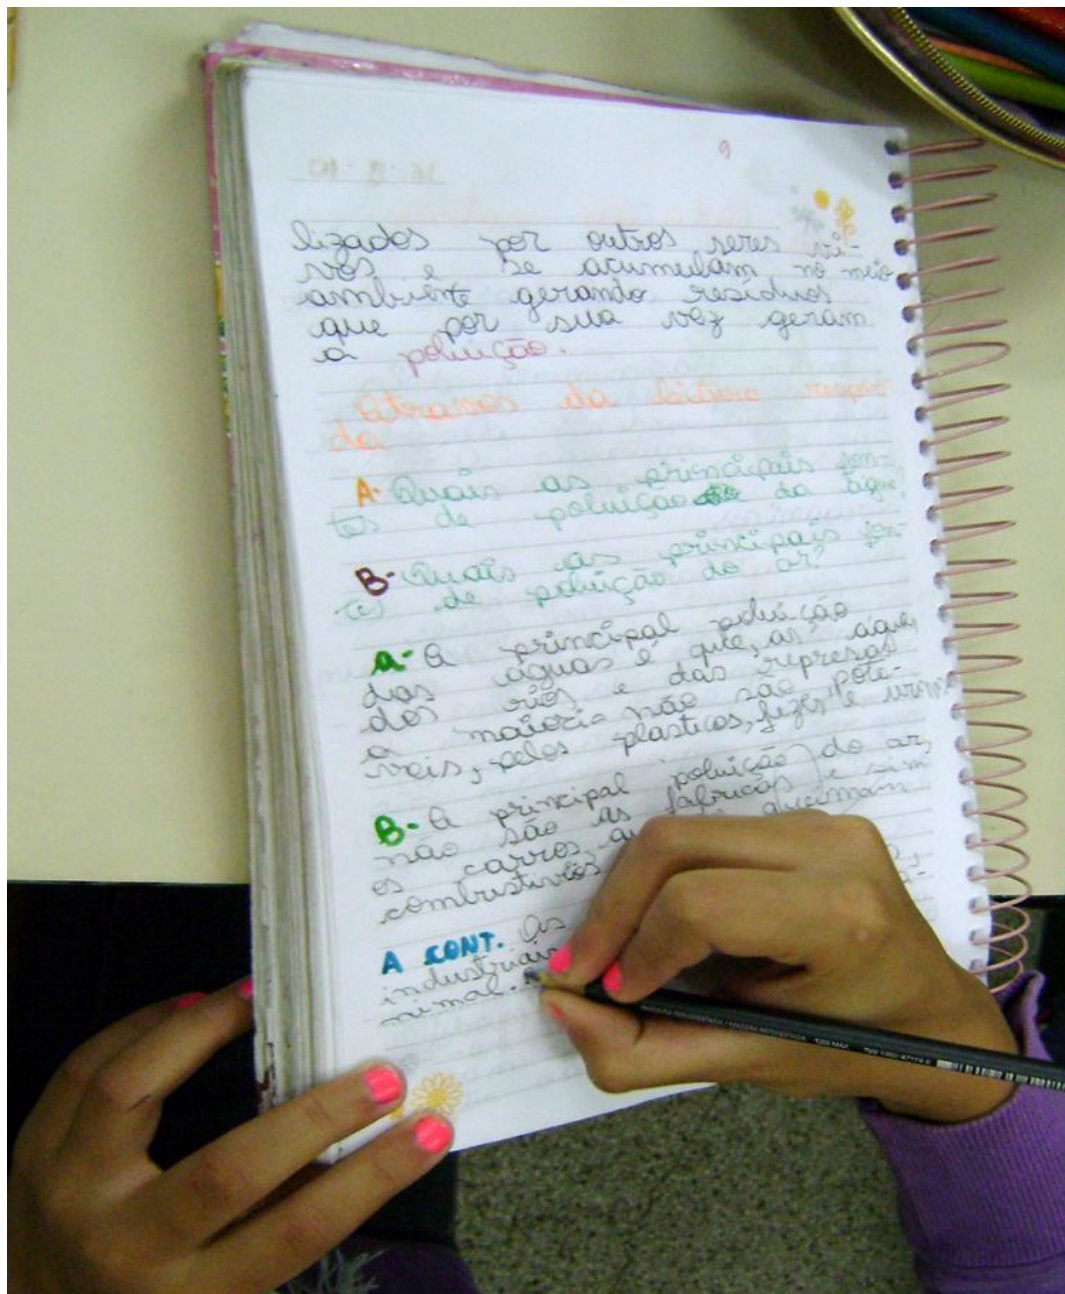 lizados por outros seres vi-
vos e se acumulam no meio
ambiente gerando resíduos
que por sua vez geram
a poluição.
Atraves da leitura respon
da
A- Quais as principais fon-
tes de poluição da água?
B- Quais as principais fon-
te) de poluição do ar?
A- A principal poluição
das águas é que, as águas
dos rios e das represas
a maioria não são pota-
veis, pelos plásticos, fezes e urina
B- A principal poluição do ar,
não são as fabricas e sim
os carros queimam
combustivéis
A CONT. As
industriais
nimal.